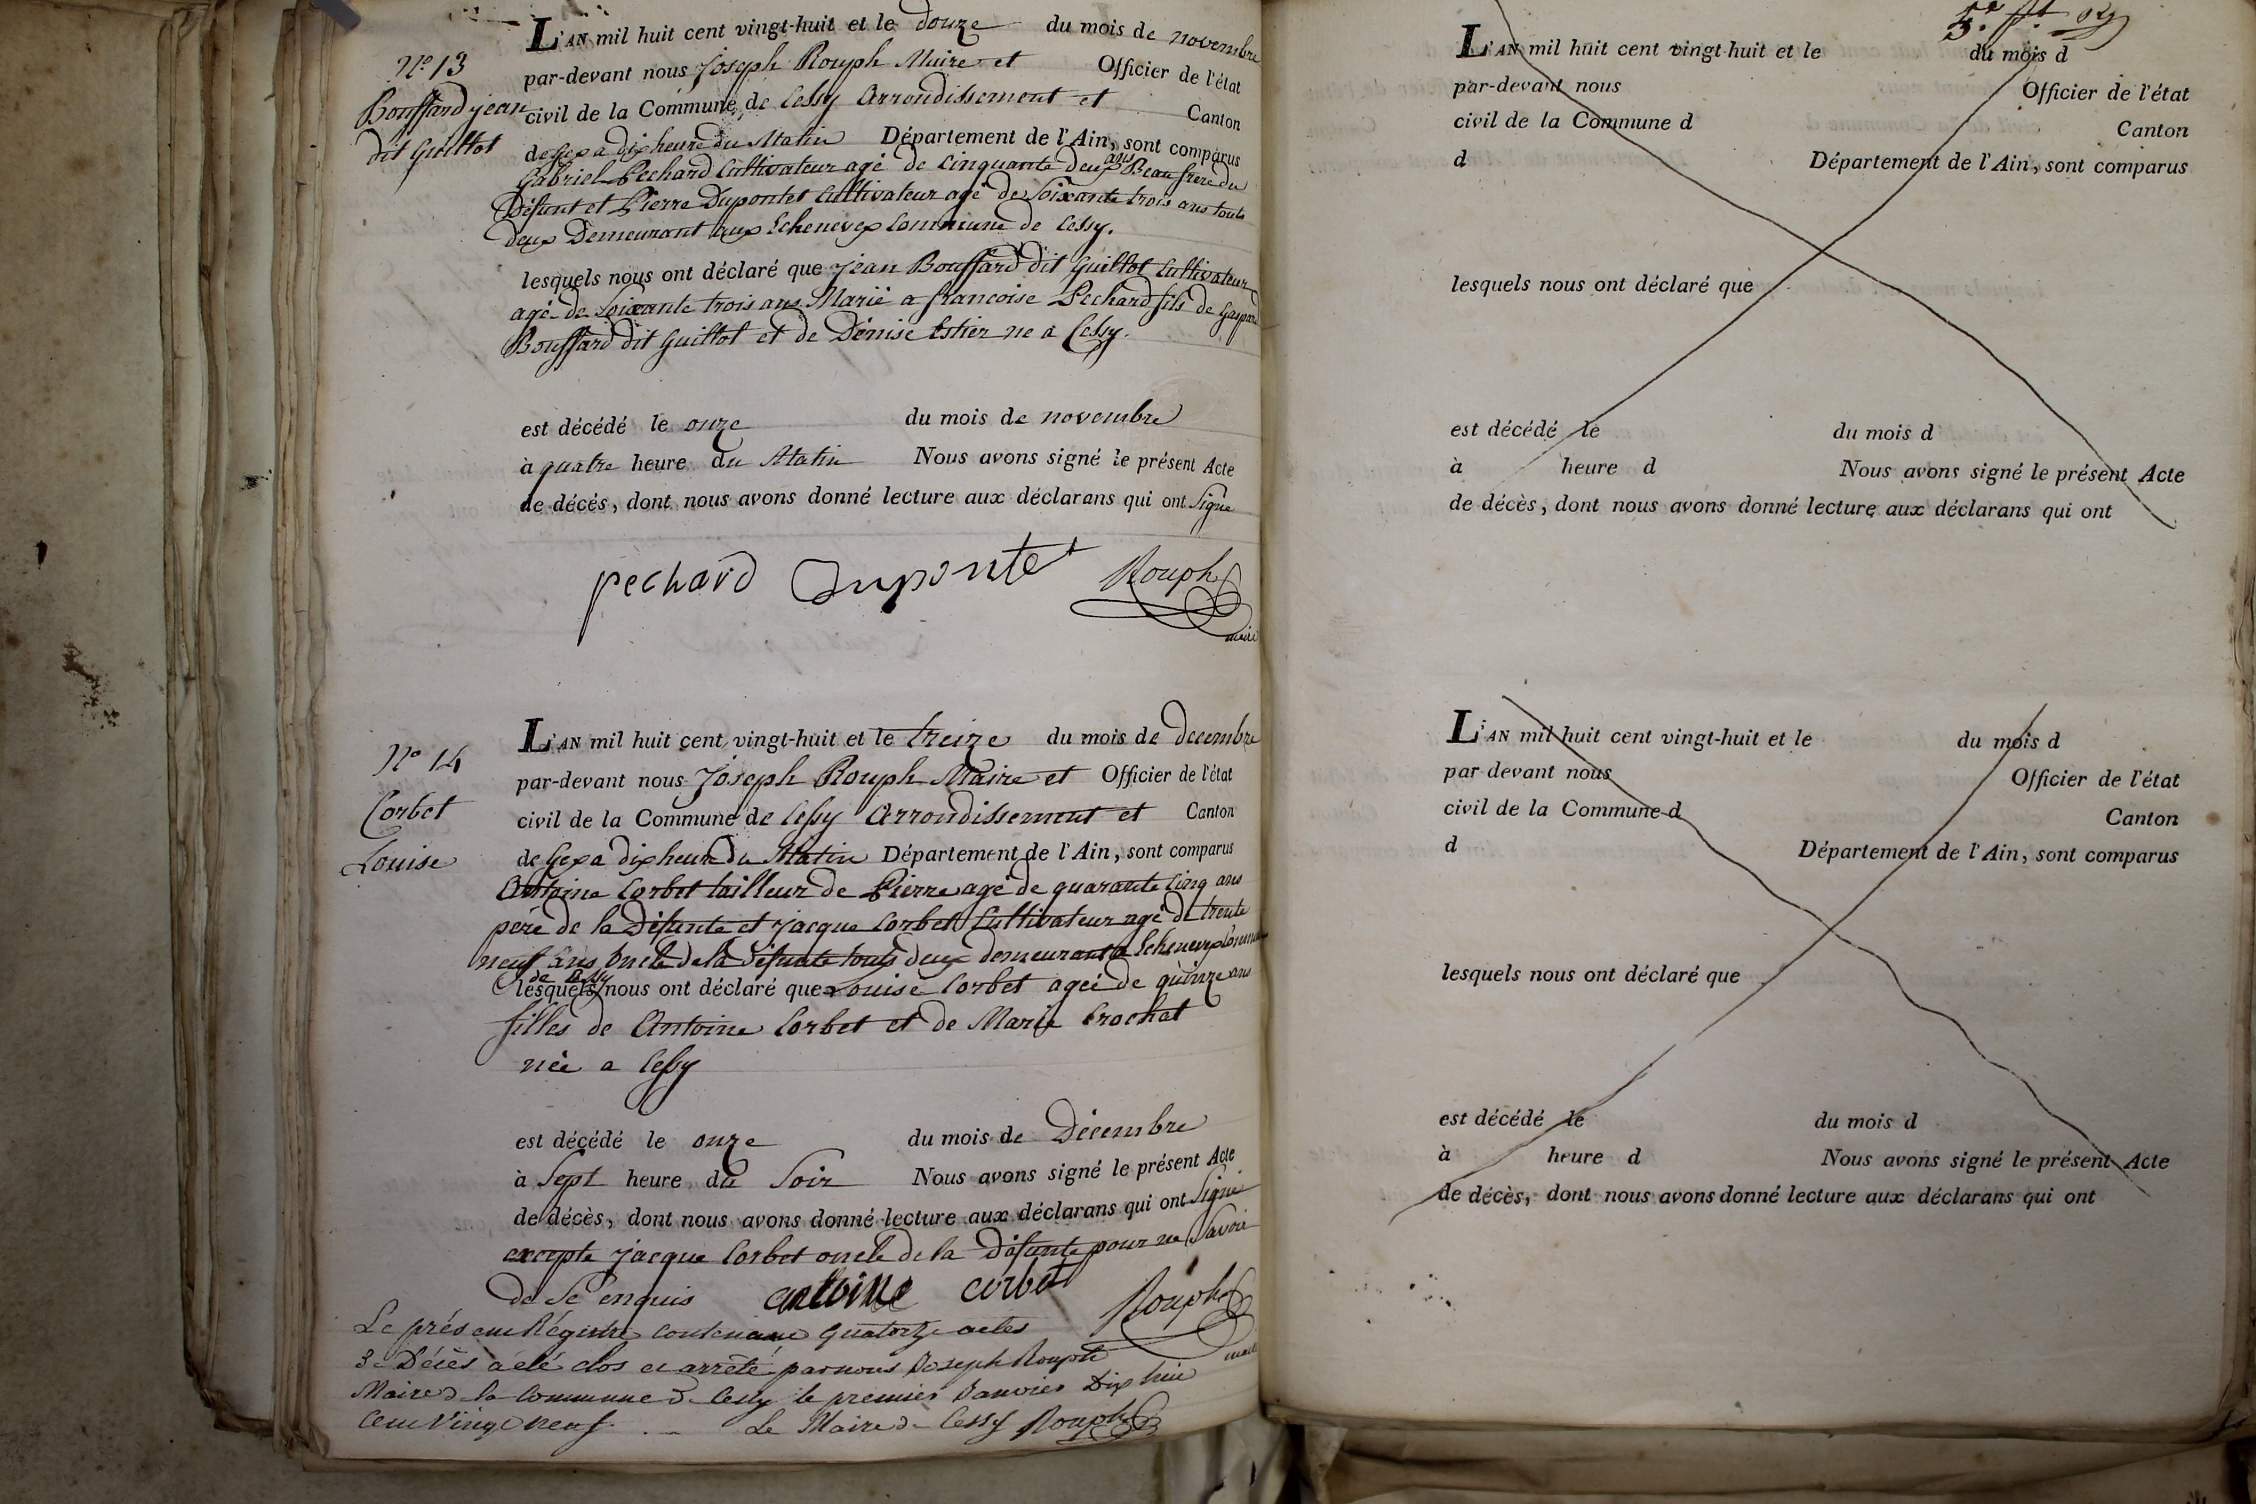 N° 13
Bouffard jean
dit Guillot
L'AN mil huit cent vingt-huit et le douze du mois de novembre
par-devant nous Joseph Rouph Maire et Officier de l'état
civil de la Commune de Cessy Arrondissement et Canton
de Gex a dix heure du Matin Département de l'Ain, sont comparus
Gabriel Pechard Cultivateur agé de Cinquante deux ans Beau frere du
Défunt et Pierre Dupontet Cultivateur agé de Soixante trois ans touts
deux Demeurant aux Echenevex Commune de Cessy.
lesquels nous ont déclaré que Jean Bouffard dit Guillot Cultivateur
agé de Soixante trois ans Marié a francoise Pechard fils de Gaspard
Bouffard dit Guillot et de Dénise Estier ne a Cessy.
est décédé le onze du mois de novembre
à quatre heure du Matin Nous avons signé le présent Acte
de décès, dont nous avons donné lecture aux déclarans qui ont Signé
pechard Dupontet Rouph
maire
N° 14
Corbet
Louise
L'AN mil huit cent vingt-huit et le treize du mois de decembre
par-devant nous Joseph Rouph Maire et Officier de l'état
civil de la Commune de Cessy Arrondissement et Canton
de Gex a dix heure du Matin Département de l'Ain, sont comparus
Antoine Corbet tailleur de Pierre agé de quarante Cinq ans
peré de la Défunte et Jacque Corbet Cultivateur agé de trente
neuf ans oncle de la défunte touts deux demeurant a Echenevex Commune
de Cessy
lesquels nous ont déclaré que Louise Corbet ageé de quinze ans
filles de Antoine Corbet et de Marie Crochat
née a Cessy
est décédé le onze du mois de Décembre
à Sept heure du Soir Nous avons signé le présent Acte
de décès, dont nous avons donné lecture aux déclarans qui ont Signé
excepte Jacque Corbet oncle de la Défunte pour ne Savoir
de Se enquis antoine corbet Rouph
maire
Le présent Régistre contenant quatorze actes
de Décès a été clos et arrêté par nous Joseph Rouph
Maire de la Commune de Cessy le premier Janvier Dix huit
Cent Vingt neuf. Le Maire de Cessy Rouph
L'AN mil huit cent vingt-huit et le du mois d
par-devant nous Officier de l'état
civil de la Commune d Canton
d Département de l'Ain, sont comparus
lesquels nous ont déclaré que
est décédé le du mois d
à heure d Nous avons signé le présent Acte
de décès, dont nous avons donné lecture aux déclarans qui ont
L'AN mil huit cent vingt-huit et le du mois d
par devant nous Officier de l'état
civil de la Commune d Canton
d Département de l'Ain, sont comparus
lesquels nous ont déclaré que
est décédé le du mois d
à heure d Nous avons signé le présent Acte
de décès, dont nous avons donné lecture aux déclarans qui ont